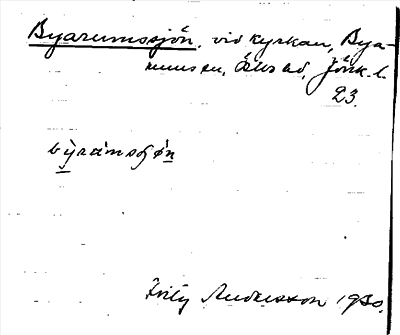 Byarumssjön. vid Kyrkan, Bya-
rums sn, Östbo hd, Jönk. l.
23.
by̆ràmsjø̀n
Fritz Andersson 1930.